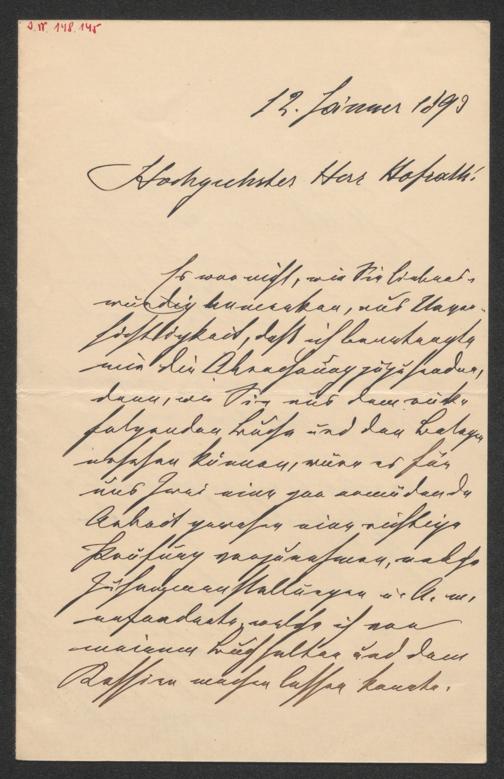 I.N. 148.145
12. Jänner 1893
Hochgeehrter Herr Hofrath!
Es war nicht, wie Sie liebens-
würdig bemerken, aus Unvor-
sichtigkeit, daß ich beantragte
mir die Abrechnung zuzusenden,
denn, wie Sie aus dem rück-
folgenden Buche und den Belegen
ersehen können, wäre es für
uns zwei eine gar ermüdende
Arbeit gewesen eine richtige
Prüfung vorzunehmen, welche
Zusammenstellungen u. A. m.
erforderte, welche ich von
meinem Buchhalter und dem
Kassier machen lassen konnte.